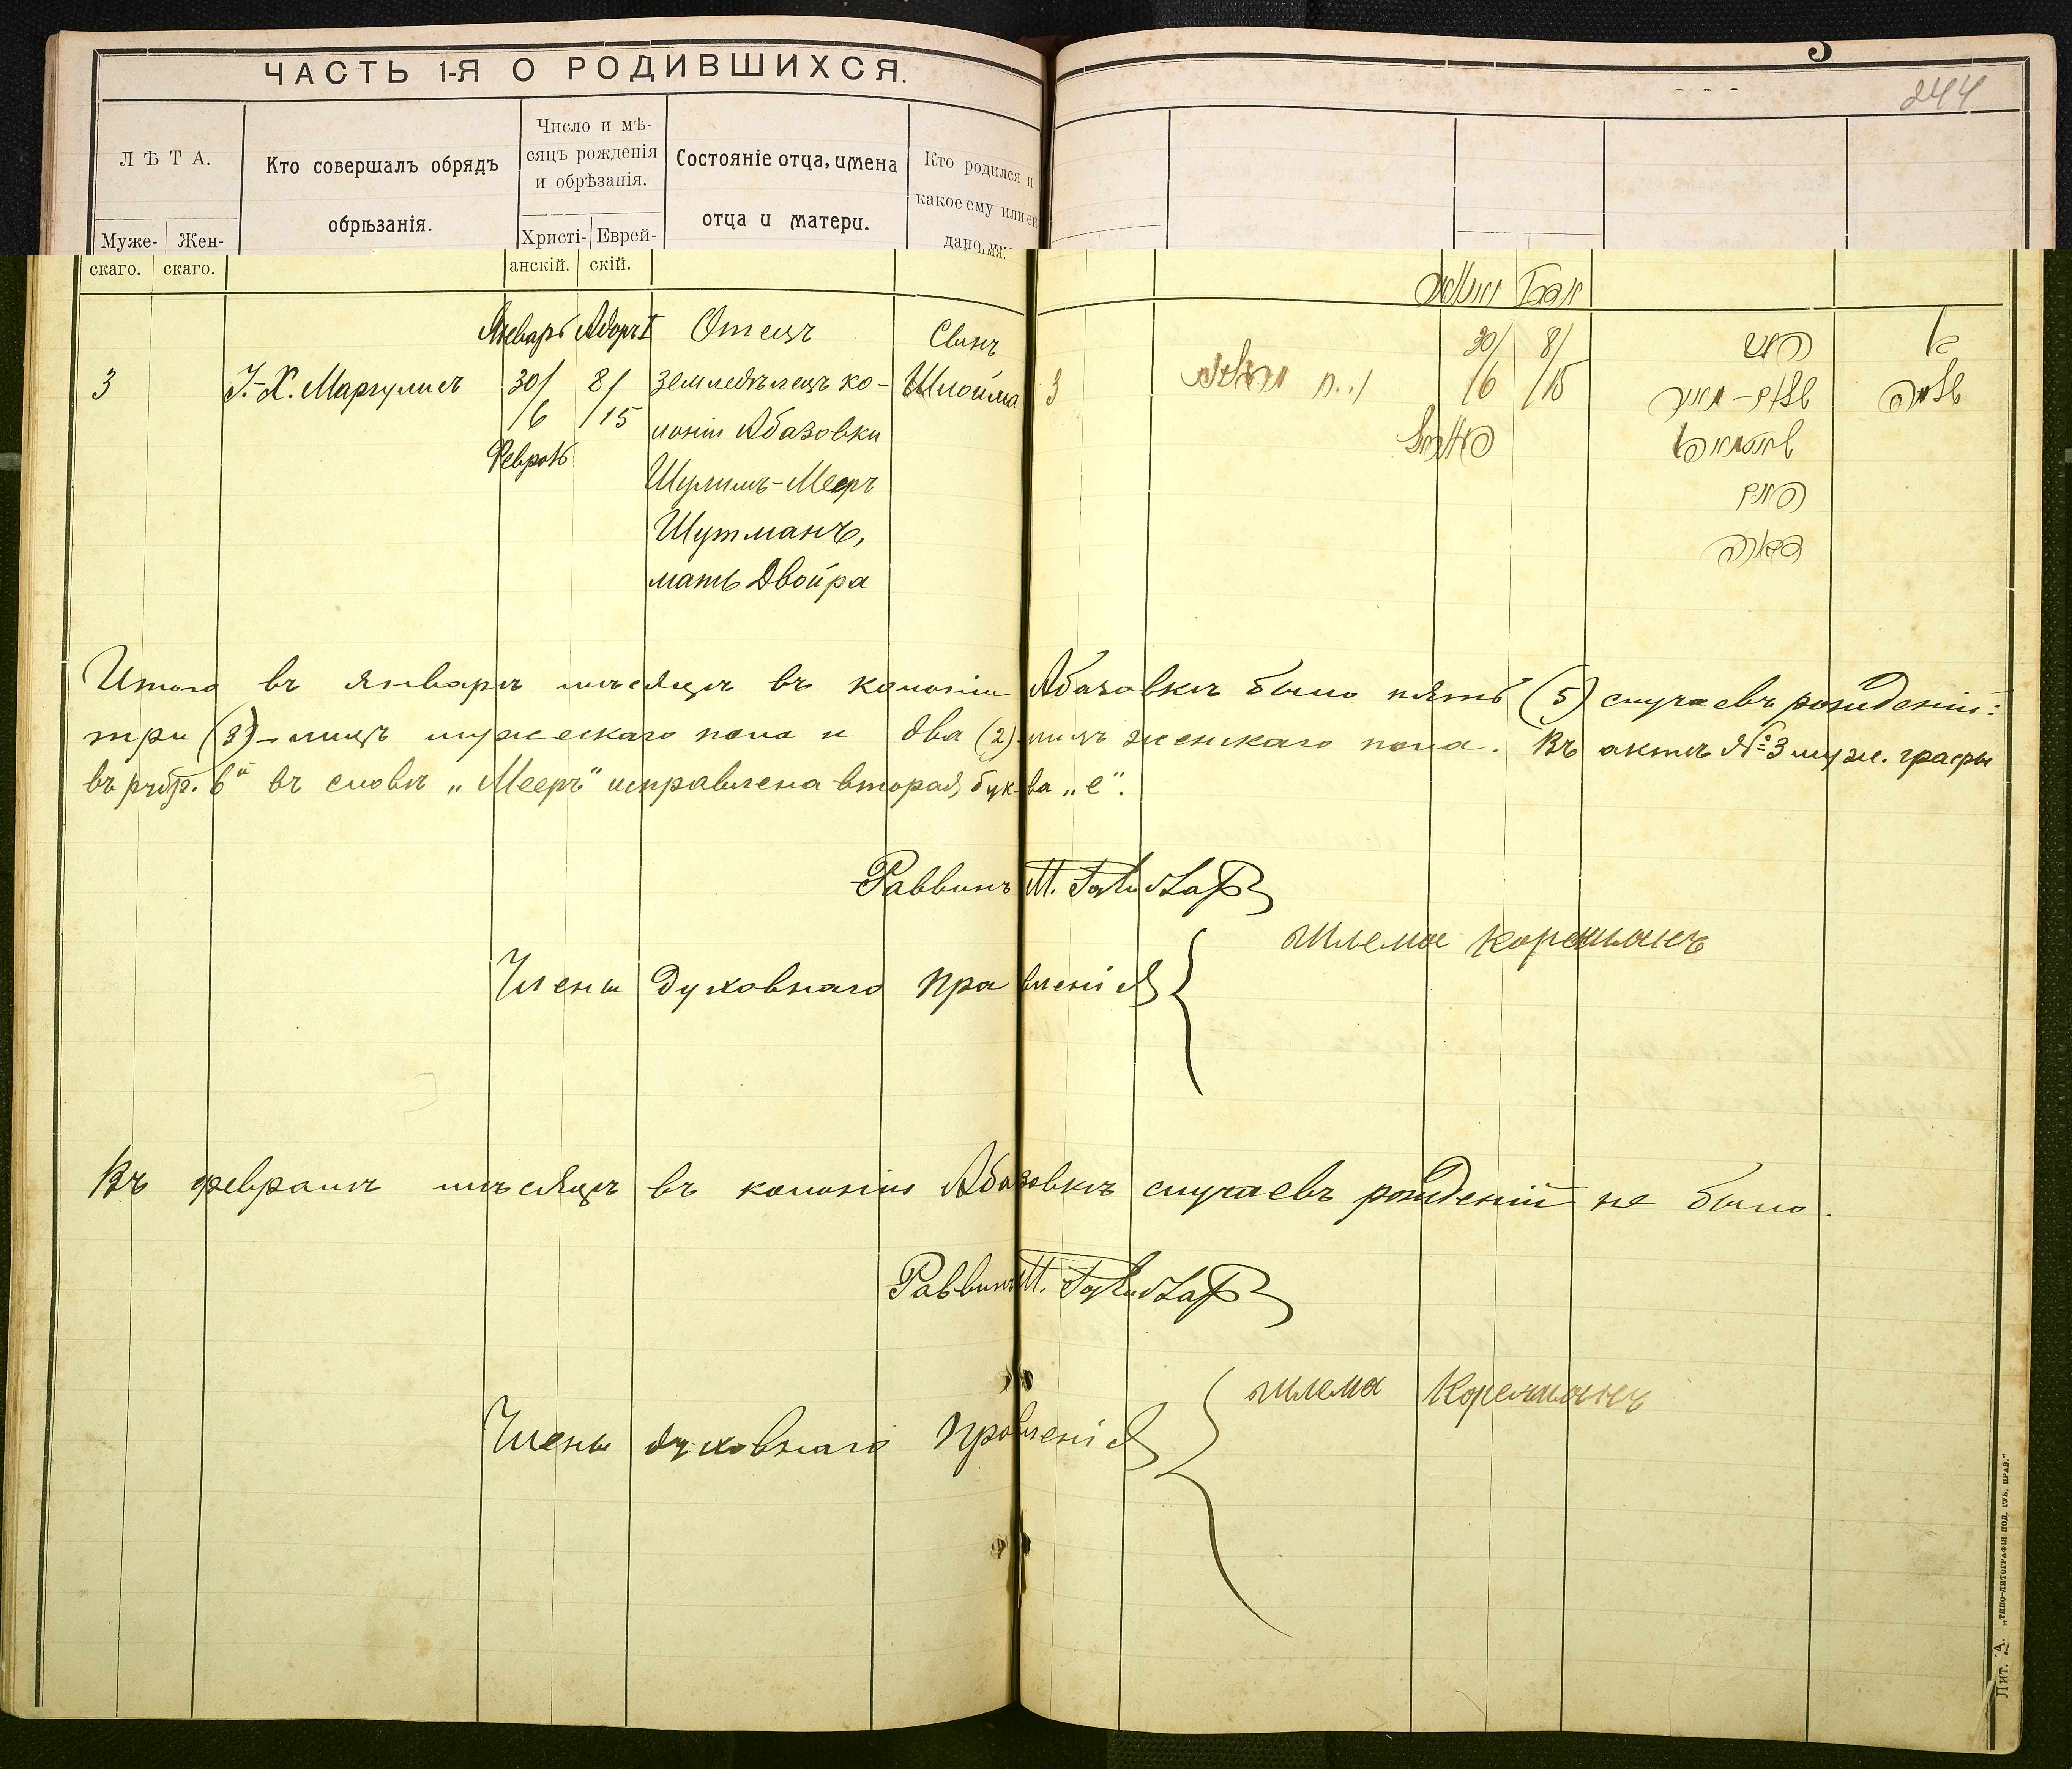 ЧАСТЬ 1-Я О РОДИВШИХСЯ.
244
ЛѢТА.
Муже-
скаго.
Жен-
скаго.
Кто совершалъ обрядъ
обрѣзанія.
Число и мѣ-
сяцъ рожденія
и обрѣзанія.
Христі-
анскій.
Еврей-
скій.
Состояніе отца, имена
отца и матери.
Кто родился и
какое ему или ей
дано имя.
3
І.-Х. Маргулисъ
Январь
30/
/6
Февраль
Адоръ I
8/
/15
Отецъ
земледѣлецъ ко-
лоніи Абазовки
Шулимъ-Мееръ
Шутманъ,
мать Двойра
Сынъ
Шлойма
3
30/
/6
8/
/15
שלמה
Итого въ январѣ мѣсяцѣ въ колоніи Абазовкѣ было пять (5) случаевъ рожденій:
три (3) - лицъ мужескаго пола и два (2) лицъ женскаго пола. Въ актѣ № 3 муж. графы
въ рубр. 6й въ словѣ „Мееръ" исправлена вторая буква „е".
Раввинъ М.
Члены Духовнаго Правленія
Шлема Коречманъ
Въ февралѣ мѣсяцѣ въ колоніи Абазовкѣ случаевъ рожденій не было.
Раввинъ М.
Члены духовнаго Правленія
Шлема Коречманъ
Лит. Д. „ТИПО-ЛИТОГРАФІИ ПОД. ГУБ. ПРАВ."